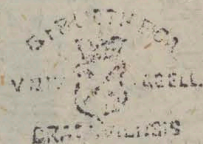 BIBLIOTHECA
VNIV IAGELL.
CRACOVIENSIS